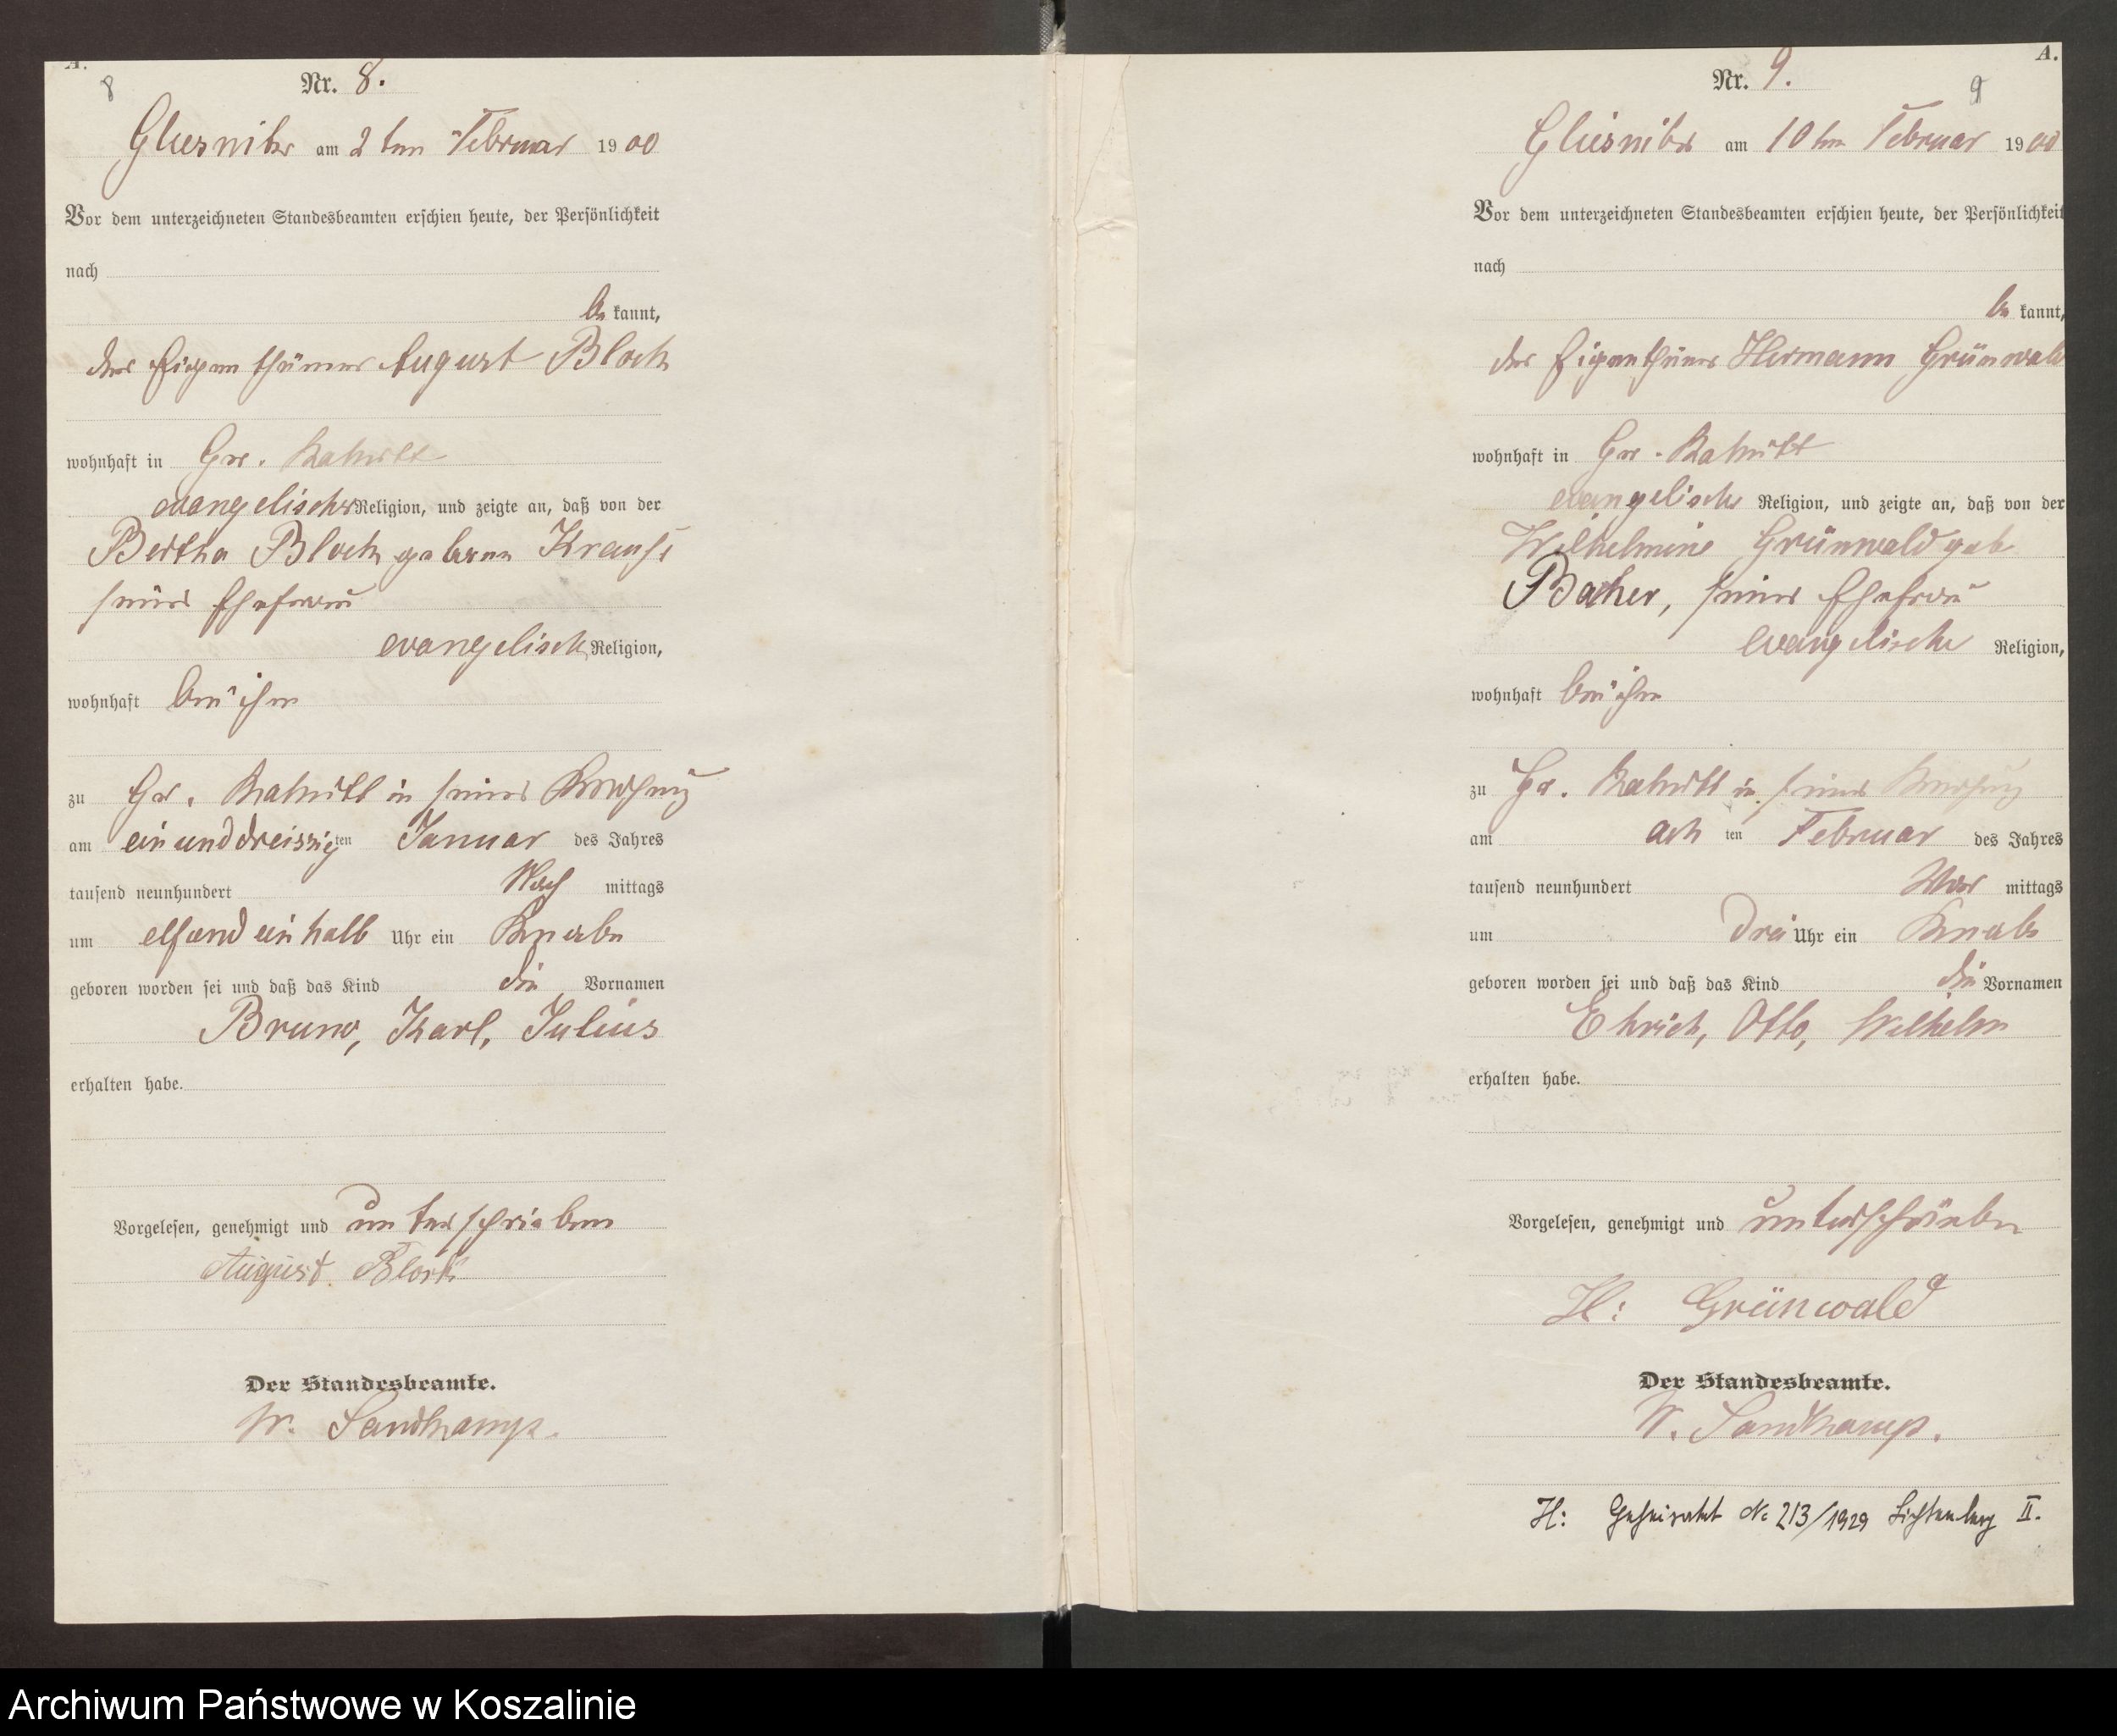 A.
8
Nr. 8.
Gliesnitz am 2ten Februar 1900
Vor dem unterzeichneten Standesbeamten erschien heute, der Persönlichkeit
nach
bekannt,
der Eigenthümer August Block
wohnhaft in Gr. Rakitt
evangelischer Religion, und zeigte an, daß von der
Bertha Block geboren Krause
seiner Ehefrau
evangelisch Religion,
wohnhaft bei ihm
zu Gr. Rakitt in seiner Behausung
am einunddreissigten Januar des Jahres
tausend neunhundert Nach mittags
um elfundeinhalb Uhr ein Knabe
geboren worden sei und daß das Kind die Vornamen
Bruno, Karl, Julius
erhalten habe.
Vorgelesen, genehmigt und unterschrieben
August Block
Der Standesbeamte.
W. Sandkamp.
A.
9
Nr. 9.
Gliesnitz am 10ten Februar 1900
Vor dem unterzeichneten Standesbeamten erschien heute, der Persönlichkeit
nach
bekannt,
der Eigenthümer Hermann Grünwald
wohnhaft in Gr. Rakitt
evangelische Religion, und zeigte an, daß von der
Wilhelmine Grünwald geb
Backer, seiner Ehefrau
evangelische Religion,
wohnhaft bei ihm
zu Gr. Rakitt in seiner Behausung
am achten Februar des Jahres
tausend neunhundert Vor mittags
um drei Uhr ein Knabe
geboren worden sei und daß das Kind die Vornamen
Ehrich, Otto, Wilhelm
erhalten habe.
Vorgelesen, genehmigt und unterschrieben
H: Grünwald
Der Standesbeamte.
W. Sandkamp.
H: Geheiratet Nr 213/1929 Lichtenberg II.
Archiwum Państwowe w Koszalinie